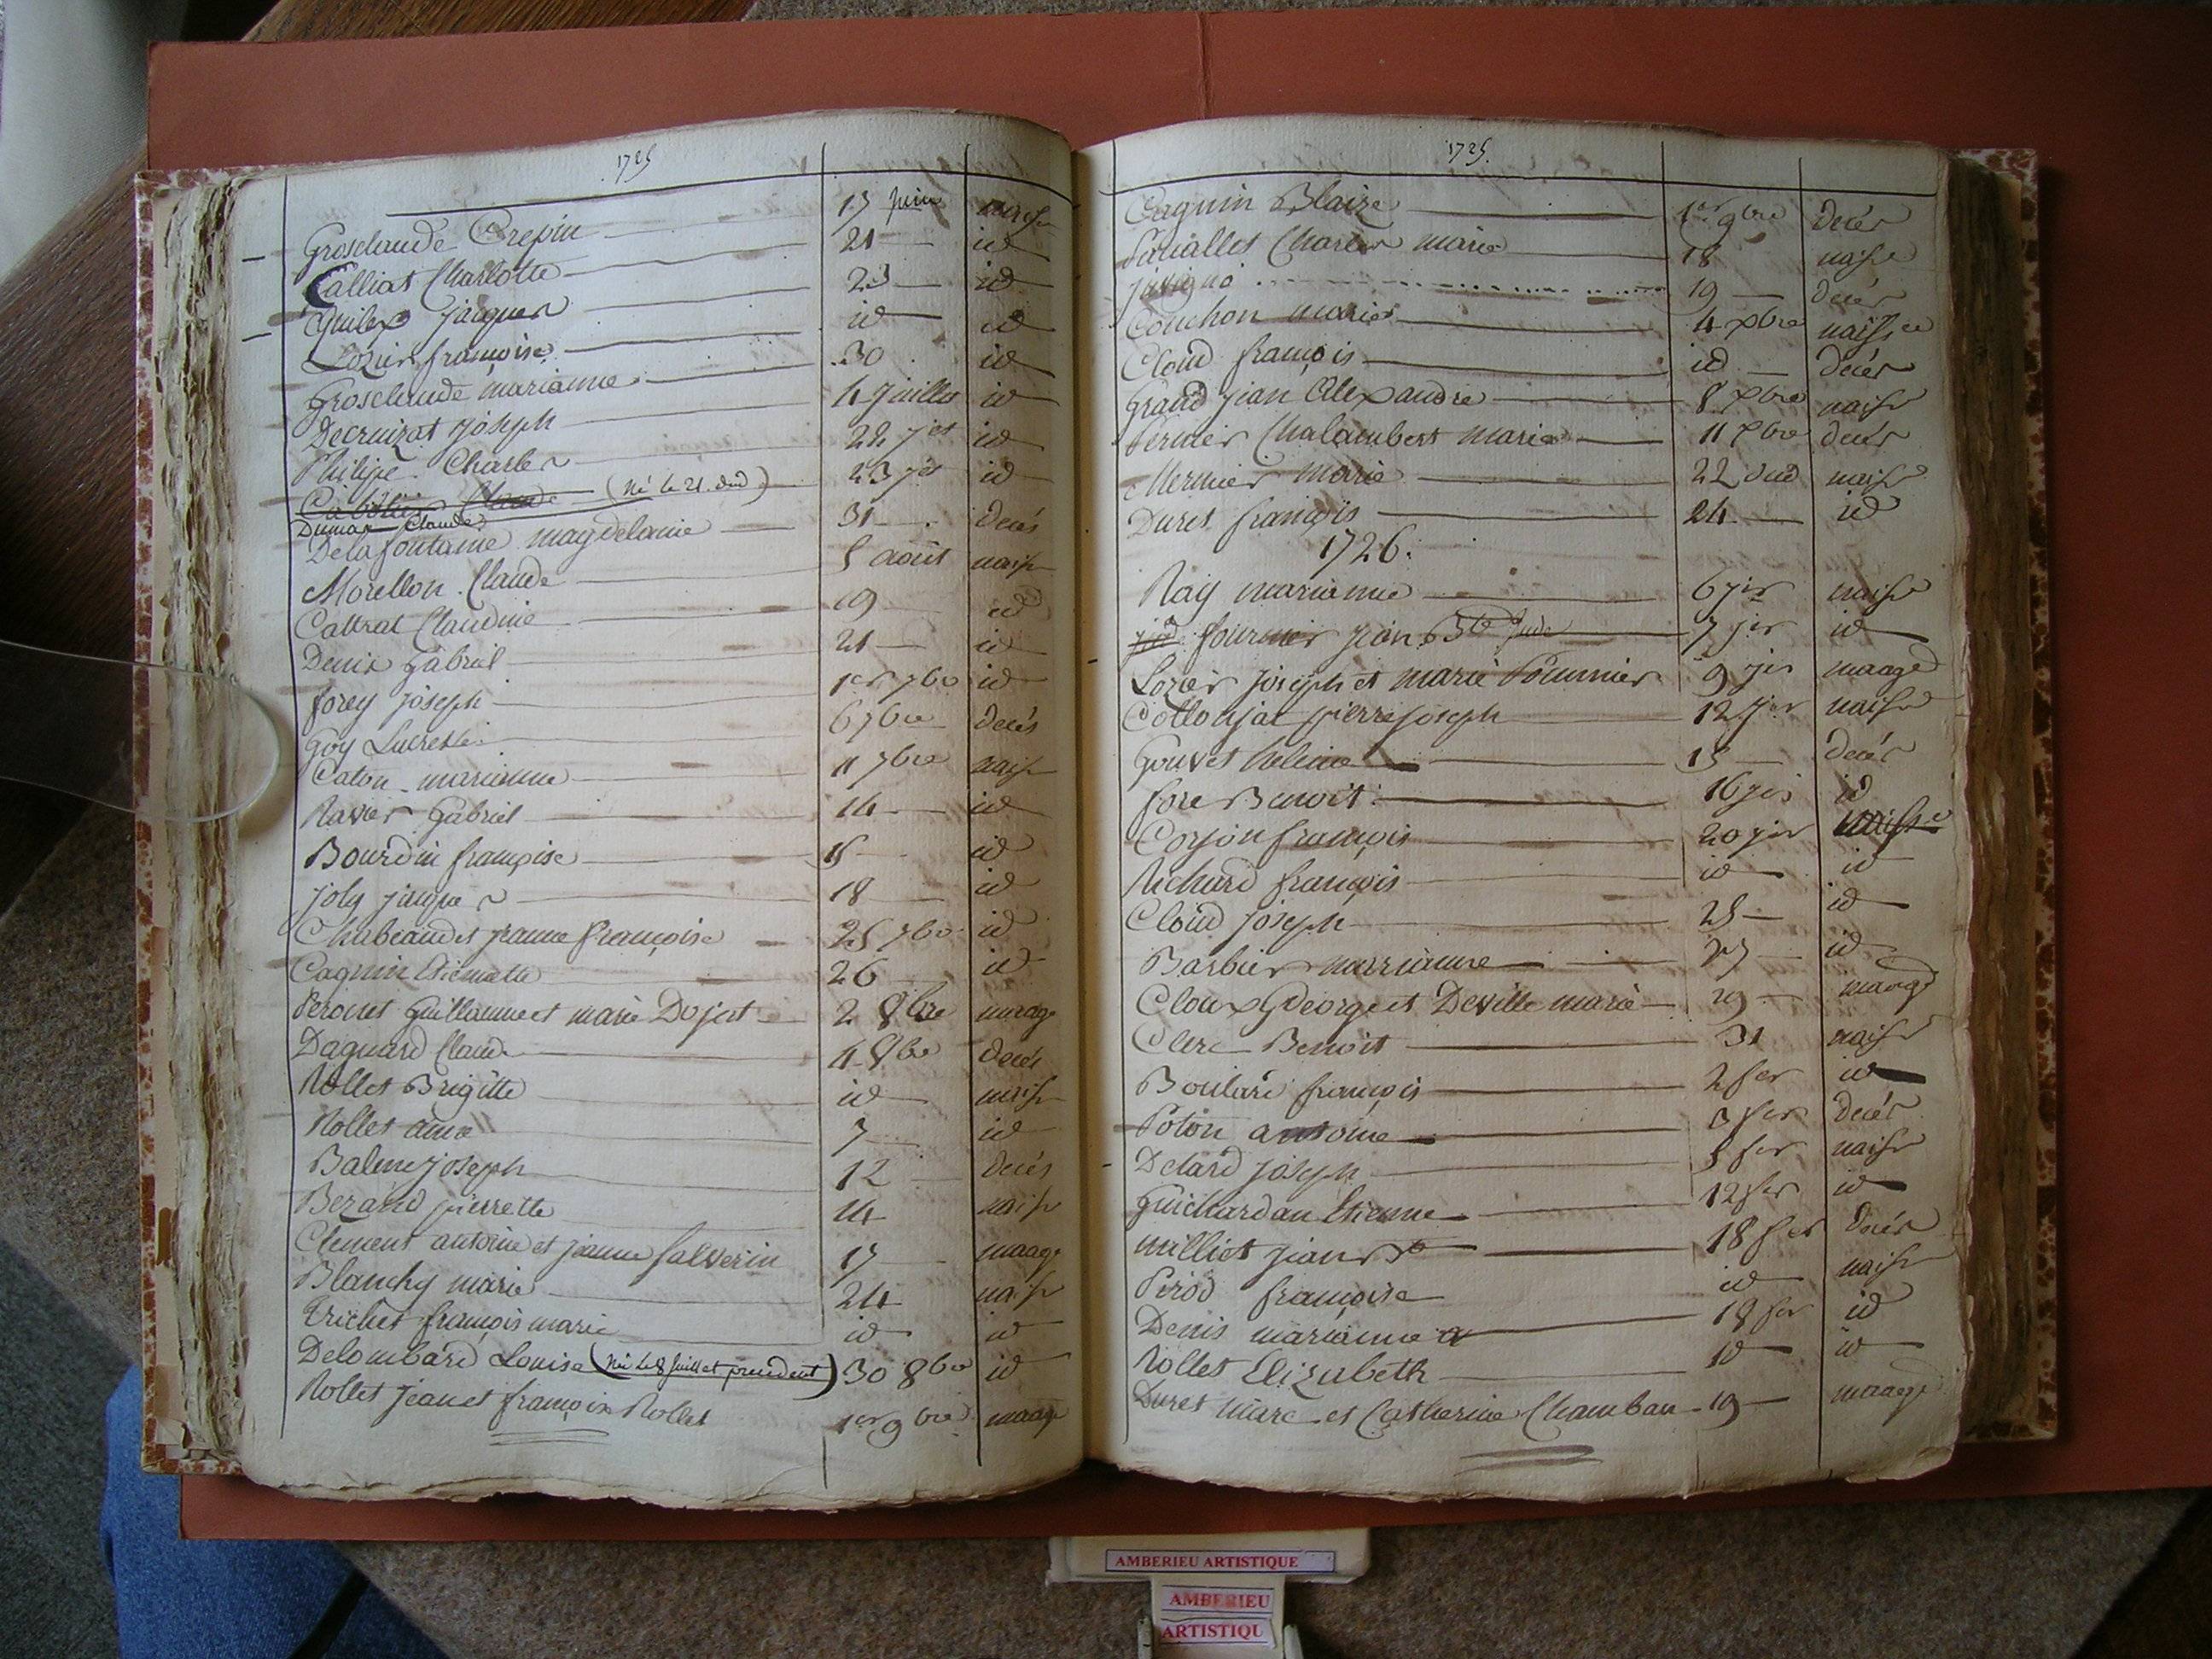 1725
Grosclaude Crepin 15 juin naisse
Calliat Charlotte 21 id
jacques 23 id
Lozier françoise id id
Grosclaude marianne 30 id
Decruizat joseph 4 juillet id
Philipe Charles 22 jet id
Claude (né le 21. dud) 23 jet id
Dumax Claude
Delafontaine magdelaine 31 decés
Morellon Claude 5 août naisse
Cattrat Claudine 19 id
Denis gabriel 21 id
forey joseph 1er 7bre id
Goy 6 7bre decés
Caton marianne 11 7bre naisse
Ravier Gabriel 14 id
Bourdin françoise 15 id
joly jacques 18 id
Chabeaudet jeanne françoise 25 7bre id
Cagnin Etiennette 26 id
Guillaume et marie Dujat 2 8bre maage
Daguard Claude 4 8bre decés
Rollet Brigitte id naisse
Rollet aimé 7 id
Balme joseph 12 decés
Bezand pierrette 14 naisse
Clement antoine et jeanne salverin 17 maage
Blanchy marie 24 naisse
Trichet françois marie id id
Delombard Louise (née le 8 juillet precedent) 30 8bre id
Rollet jean et françoise Rollet 1er 9bre maage
1725.
Cagnin Blaize 1er 9bre decés
Charles marie 18 naisse
19 decés
Couchon marie 4 xbre naisse
Cloud françois id decés
Grand jean Alexandre 8 xbre naisse
Chalambert marie 11 xbre decés
Mermier marie 22 dud naisse
Duret françois 24 id
1726.
Ray marianne 6 jer naisse
fournier jean Bte Jude 7 jer id
Lozier joseph et marie Pommier 9 jer maage
Collonjat pierre joseph 12 jer naisse
Gouvet helene 15 decés
fore Benoit 16 jer id
Corjon françois 20 jer naisse
Richard françois id id
Cloud joseph 25 id
Barbier marianne 27 id
Cloux George et Deville marie 29 maage
Clerc Benoit 31 naisse
Boulard françois 2 fer id
Poton antoine 3 fer decés
Delard joseph 5 fer naisse
Guichardan Etienne 12 fer id
milliet jean Bte 18 fer decés
Pirod françoise id naisse
Denis marianne 18 fer id
Rollet Elizabeth id id
Duret marc et Catherine Chambau 19 maage
AMBERIEU ARTISTIQUE
AMBERIEU
ARTISTIQU